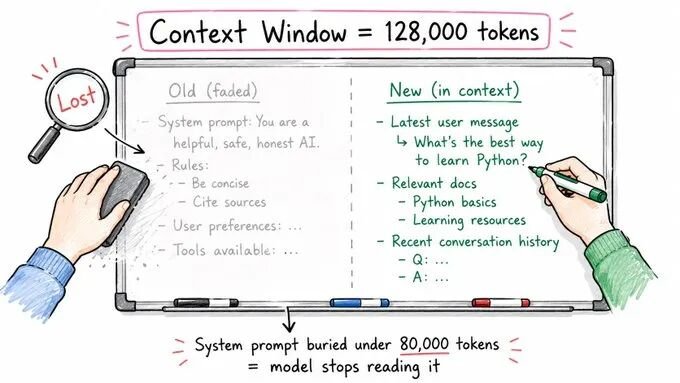 Context Window = 128,000 tokens
Lost
Old (faded)
- System prompt: You are a
helpful, safe, honest AI.
- Rules:
- Be concise
- Cite sources
- User preferences: ...
- Tools available: ...
New (in context)
- Latest user message
↳ What's the best way
to learn Python?
- Relevant docs
- Python basics
- Learning resources
- Recent conversation history
- Q: ...
- A: ...
System prompt buried under 80,000 tokens
= model stops reading it